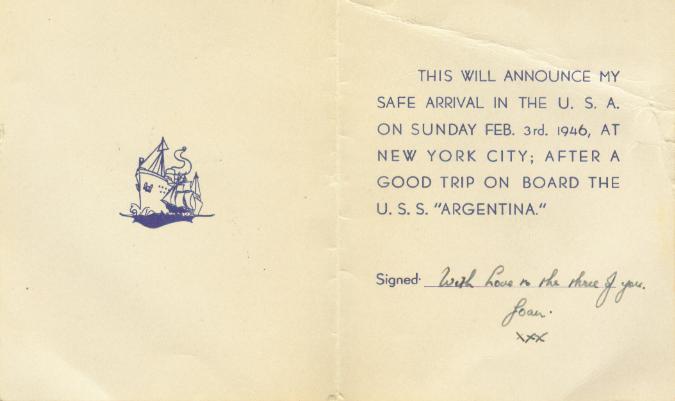 THIS WILL ANNOUNCE MY
SAFE ARRIVAL IN THE U. S. A.
ON SUNDAY FEB. 3rd. 1946, AT
NEW YORK CITY; AFTER A
GOOD TRIP ON BOARD THE
U. S. S. "ARGENTINA."
Signed· With Love to the three of you.
Joan.
xxx